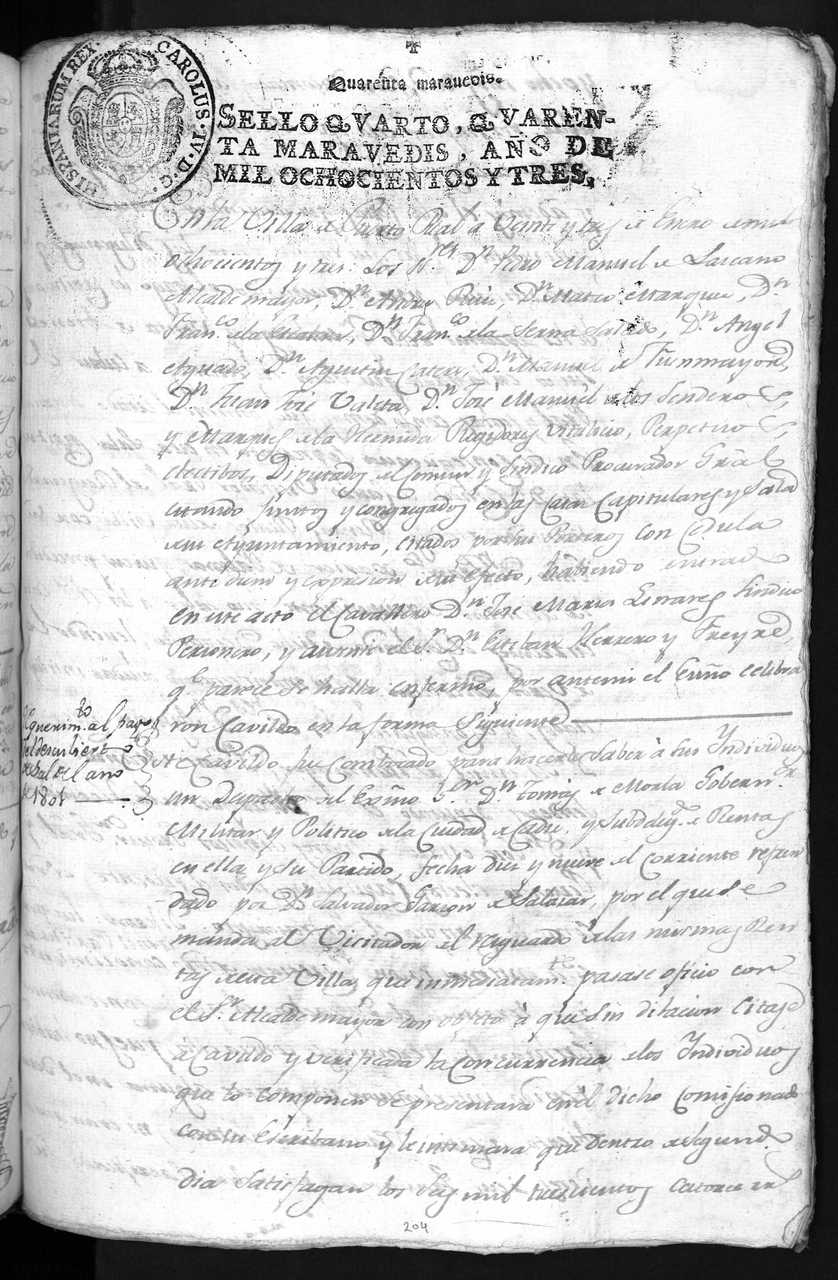 HISPANIARUM REX. CAROLUS·IV·D·G·
Quarenta maravedis.
SELLO QVARTO, QVAREN-
TA MARAVEDIS, AÑO DE
MIL OCHOCIENTOS Y TRES,
En la Villa de Puerto Real a Veinte y tres de Enero de mil
ochocientos y tres: Los S.res D.n Pedro Manuel de Lascano
Alcalde mayor, D.n Andres Ruiz, D.n Mateo Marquez, D.n
Fran.co de la D.n Fran.co de la Serna Salcedo, D.n Angel
Aguado, D.n Agustin D.n Manuel de Fuenmayor,
D.n Juan José Valeta, D.n José Manuel de los Senderos
y Manuel de la Regidores Vitalicio, Perpetuos
electibos, Diputados del Comun y Sindico Procurador Gral
estando juntos y congregados en las Casas Capitulares y Sala
de su Ayuntamiento, citados por sus Porteros con Cedula
ante diem y expresion de su efecto, habiendo entrado
en este acto el Cavallero D.n José Maria Linares Sindico
Personero, y ausente el S.r D.n Esteban Herrero y Freyre,
q.e parece se halla enfermo, por ante mi el Esñō celebra
ron Cavildo en la forma Siguiente
Requerim.to al pago
del descubierto
de Sal del año
de 1801
A Cavildo fue Combocado para hacerle Saber à sus Individuos
un Despacho del Exmo S.or D.n Tomas de Morla Gobern.or
Militar y Politico de la Ciudad de Cadiz, y Subdeleg.o de Rentas
en ella y su Partido, fecha diez y nueve del corriente refren
dado por D.n Salvador Garzon de Salazar, por el que se
manda al Vicitador del resguardo de las mismas Ren
tas de esta Villa, que inmediatam.te pasase oficio con
el S.r Alcalde mayor con objeto à que sin dilacion Citase
a Cavildo y verificada la concurrencia de los Individuos
que lo componen se presentara en él dicho Comisionado
con su Escribano y le intimara que dentro de segundo
dia Satisfagan los Seis mil trescientos Catorce r.s
204